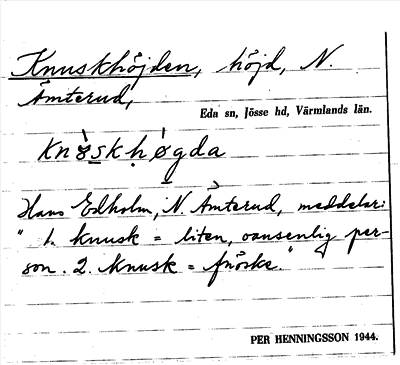 Knuskhöjden, höjd, N.
Ämterud,
Eda sn, Jösse hd, Värmlands län.
knøskhøgda
Hans Edholm, N. Ämterud, meddelar:
" 1. knusk = liten, oansenlig per-
son. 2. knusk = fnöske."
PER HENNINGSSON 1944.